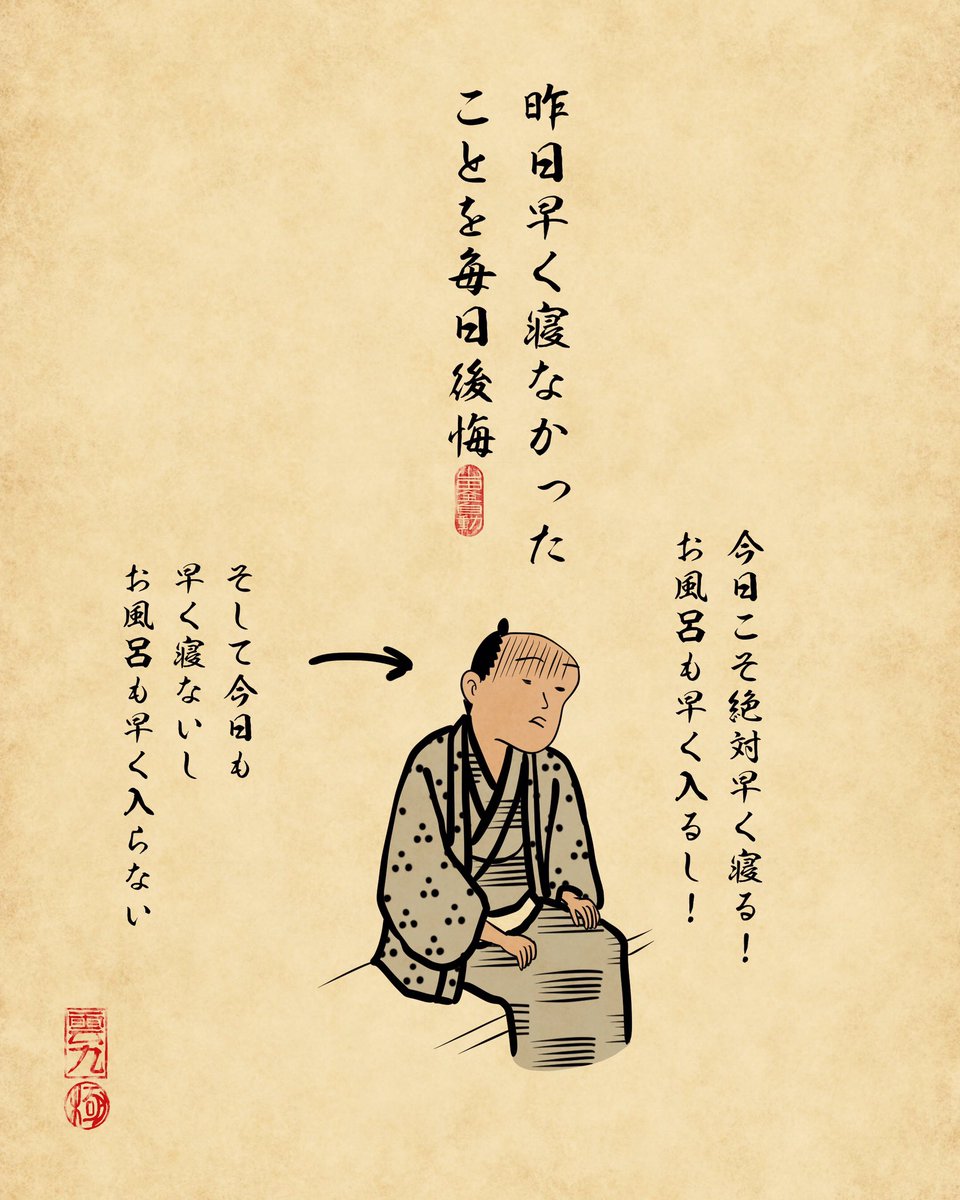 昨日早く寝なかった
ことを毎日後悔
今日こそ絶対早く寝る!
お風呂も早く入るし!
そして今日も
早く寝ないし
お風呂も早く入らない